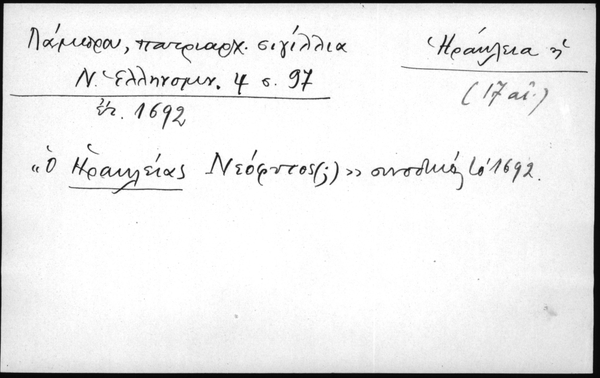 Λάμπρου, πατριαρχ. σιγίλλια
Ν. Ἑλληνομν. 4 σ. 97
ἔτ. 1692
Ἡράκλεια ἡ
(17 αἰ.)
«ὁ Ἡρακλείας Νεόφυτος(;)» συνοδικός τῷ 1692.